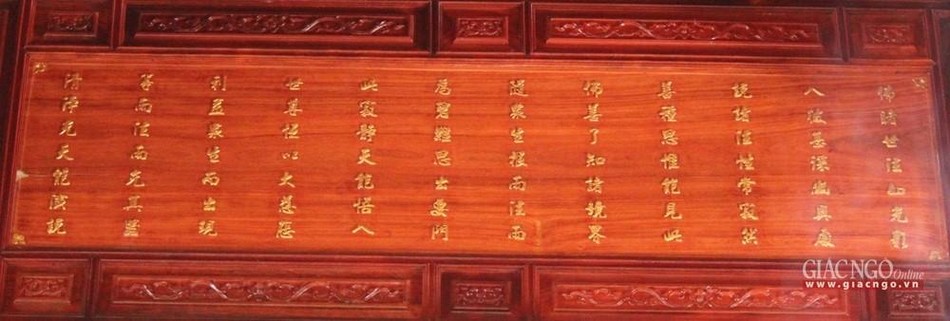 佛睹世法如光影
入彼甚深幽奧處
說諸法性常寂然
善種思惟能見此
佛善了知諸境界
隨眾生根雨法雨
為啟難思出要門
此寂靜天能悟入
世尊恒以大慈悲
利益眾生而出現
等雨法雨充其器
清淨光天能演說
GIACNGO Online
www.giacngo.vn